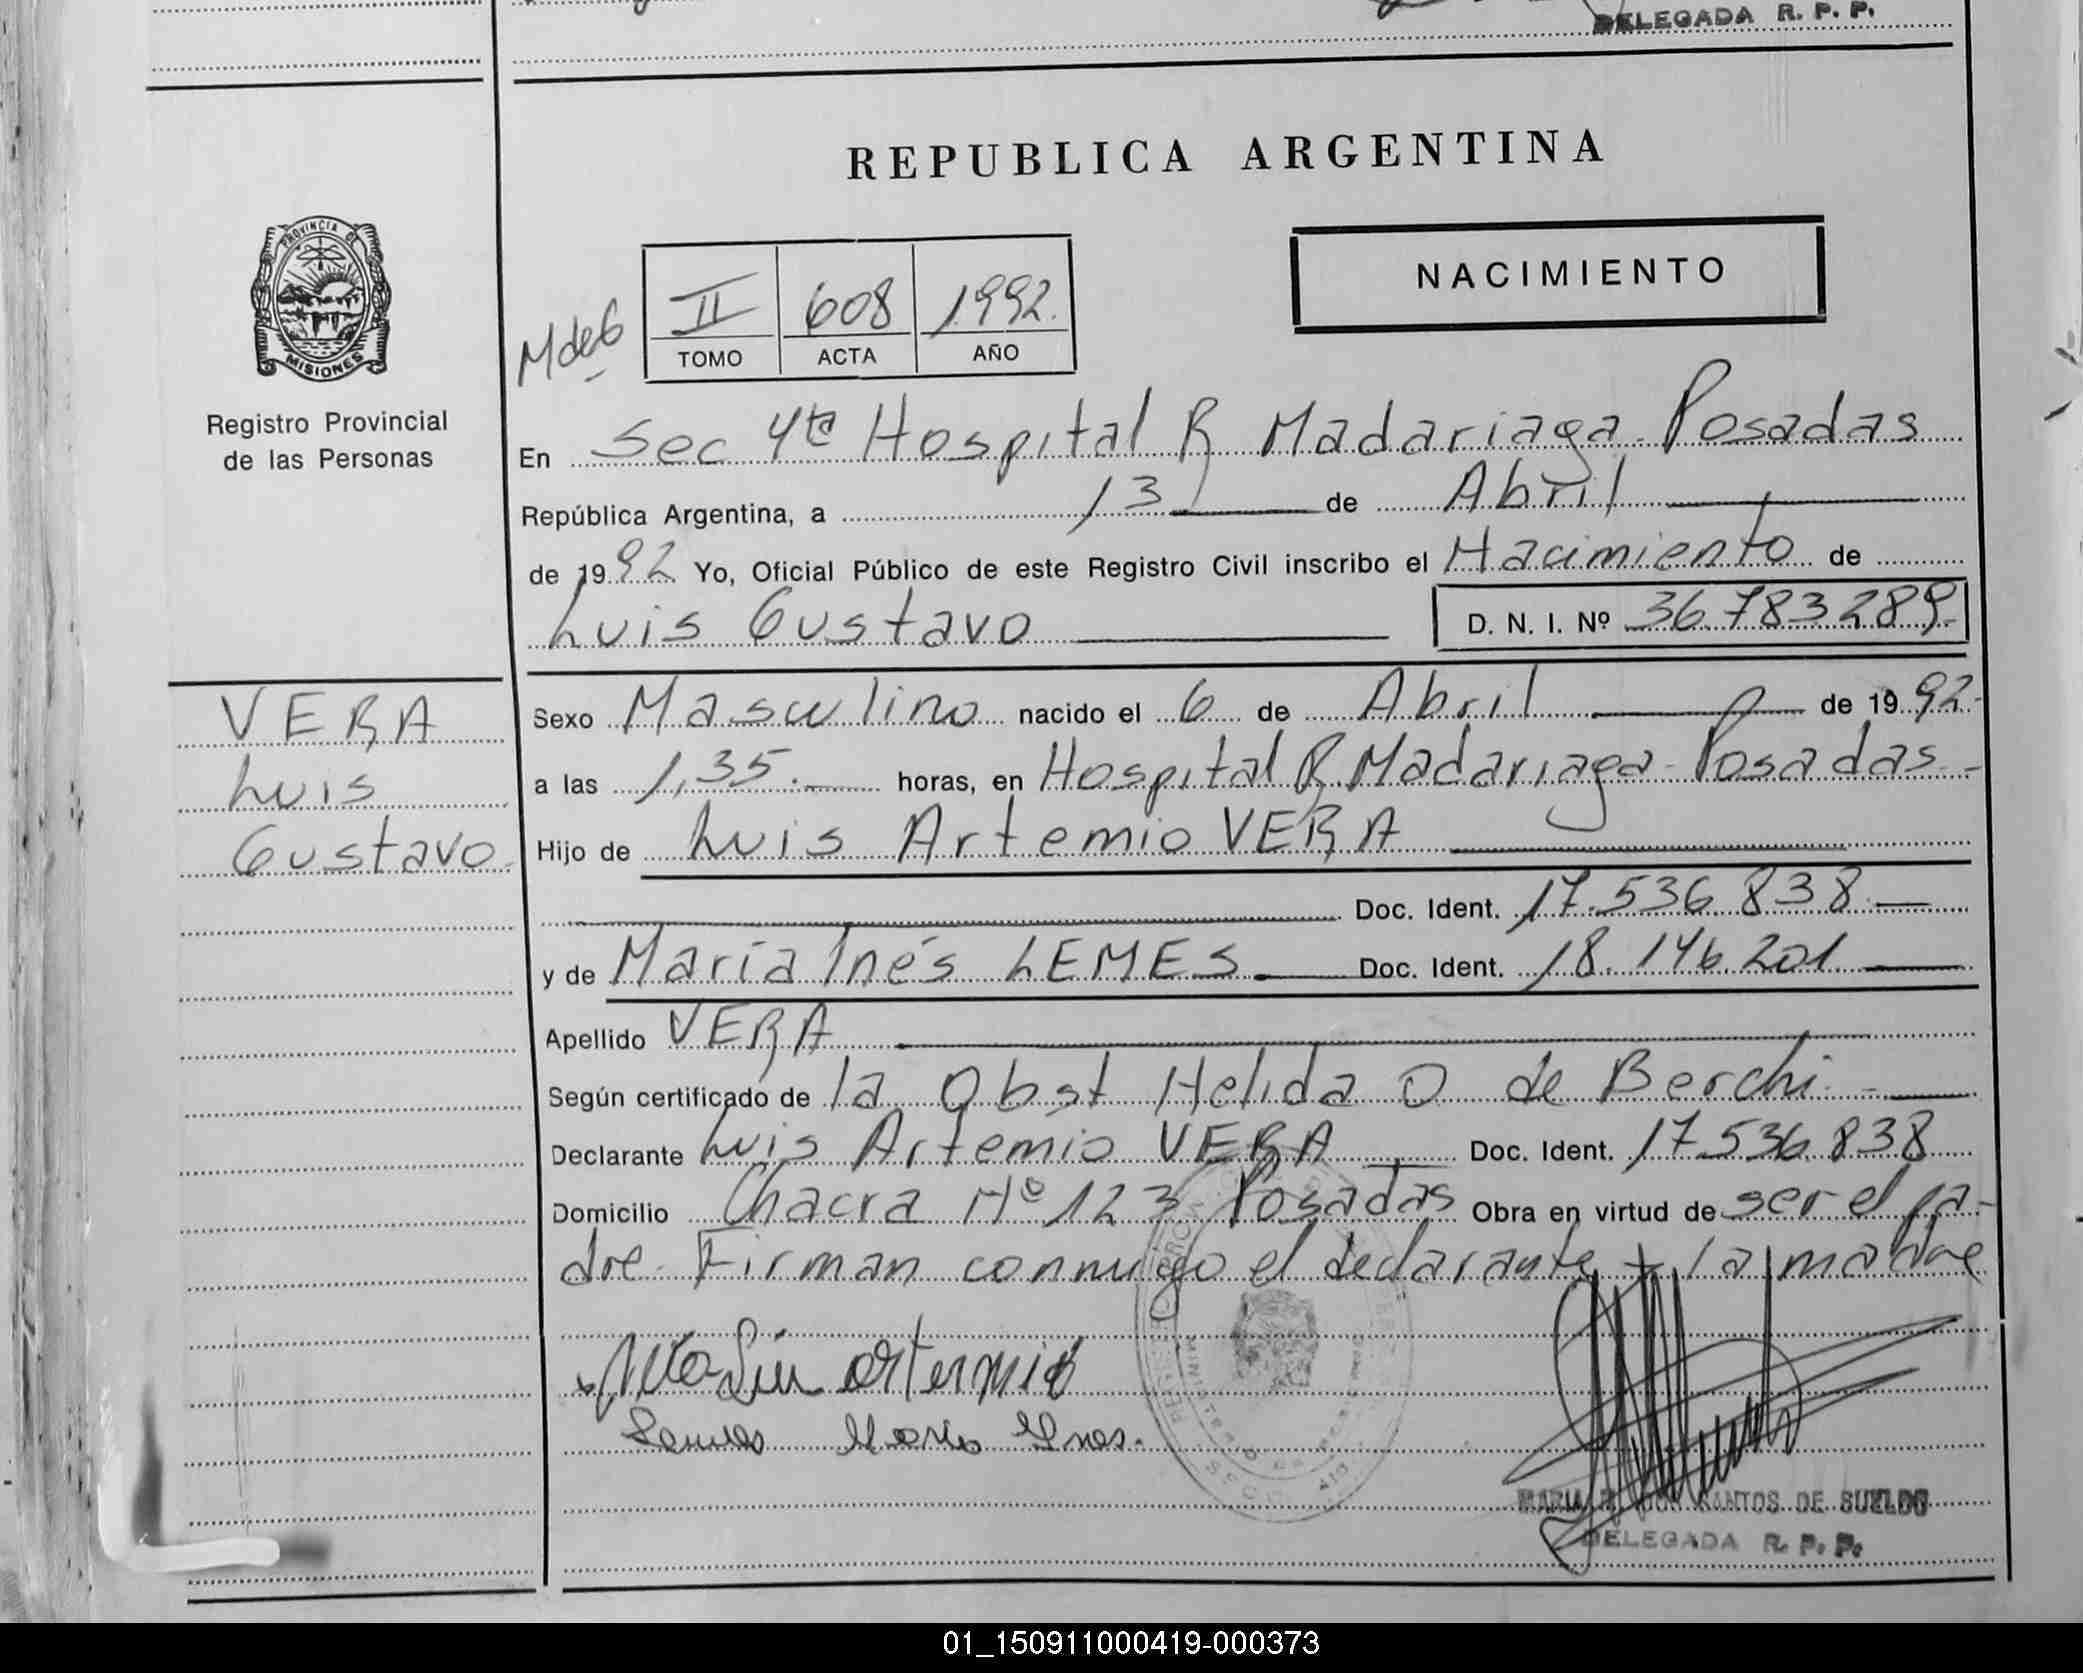 DELEGADA R. P. P.
REPUBLICA ARGENTINA
NACIMIENTO
PROVINCIA DE
MISIONES
Registro Provincial
de las Personas
M de 6
II 608 1992.
TOMO ACTA AÑO
En Sec 4ta Hospital R Madariaga Posadas
República Argentina, a 13 de Abril
de 1992 Yo, Oficial Público de este Registro Civil inscribo el Nacimiento de
Luis Gustavo D. N. I. Nº 36.783.289.
VERA
Luis
Gustavo
Sexo Masculino nacido el 6 de Abril de 1992
a las 1,35. horas, en Hospital R. Madariaga - Posadas
Hijo de Luis Artemio VERA
Doc. Ident. 17.536.838
y de María Inés LEMES Doc. Ident. 18.146.201
Apellido VERA
Según certificado de la Obst Helida O de Berchi
Declarante Luis Artemio VERA Doc. Ident. 17.536.838
Domicilio Chacra Nº 123 Posadas Obra en virtud de ser el pa-
dre. Firman conmigo el declarante y la madre
Luis artemio
Lemes Maria Ines.
SANTOS DE SUELDO
DELEGADA R. P. P.
01_150911000419-000373